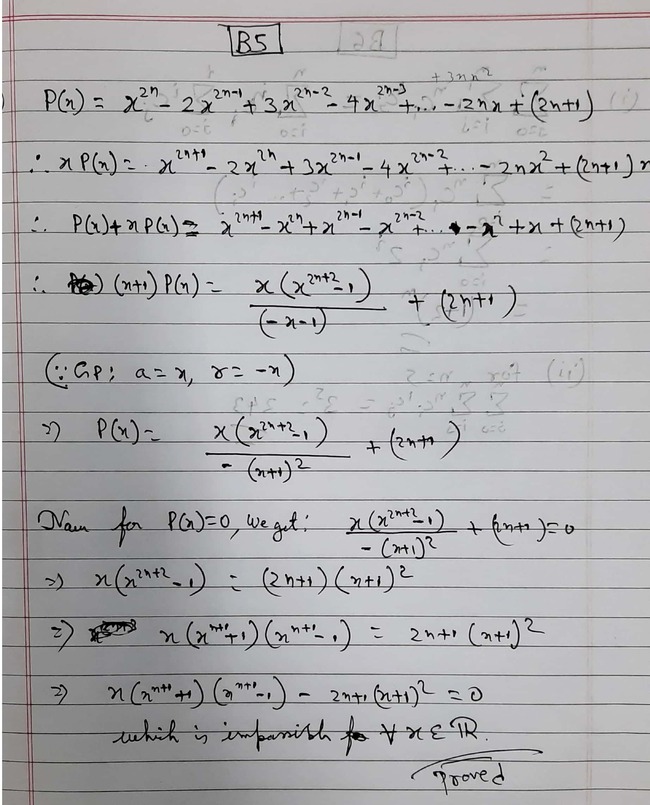 B5
+ 3nx²
P(x) = x^{2n} - 2x^{2n-1} + 3x^{2n-2} - 4x^{2n-3} + ... - 2nx + (2n+1)
∴ xP(x) = x^{2n+1} - 2x^{2n} + 3x^{2n-1} - 4x^{2n-2} + ... - 2nx² + (2n+1)x
∴ P(x) + xP(x) = x^{2n+1} - x^{2n} + x^{2n-1} - x^{2n-2} + ... - x² + x + (2n+1)
∴ (x+1) P(x) = x(x^{2n+2} - 1) / (-x-1) + (2n+1)
(∵ GP: a = x, r = -x)
⇒ P(x) = x(x^{2n+2} - 1) / -(x+1)² + (2n+1)
Now for P(x)=0, we get: x(x^{2n+2} - 1) / -(x+1)² + (2n+1) = 0
⇒ x(x^{2n+2} - 1) = (2n+1)(x+1)²
⇒ x(x^{n+1} + 1)(x^{n+1} - 1) = 2n+1 (x+1)²
⇒ x(x^{n+1} + 1)(x^{n+1} - 1) - 2n+1 (x+1)² = 0
which is impossible ∀ x ∈ ℝ.
Proved